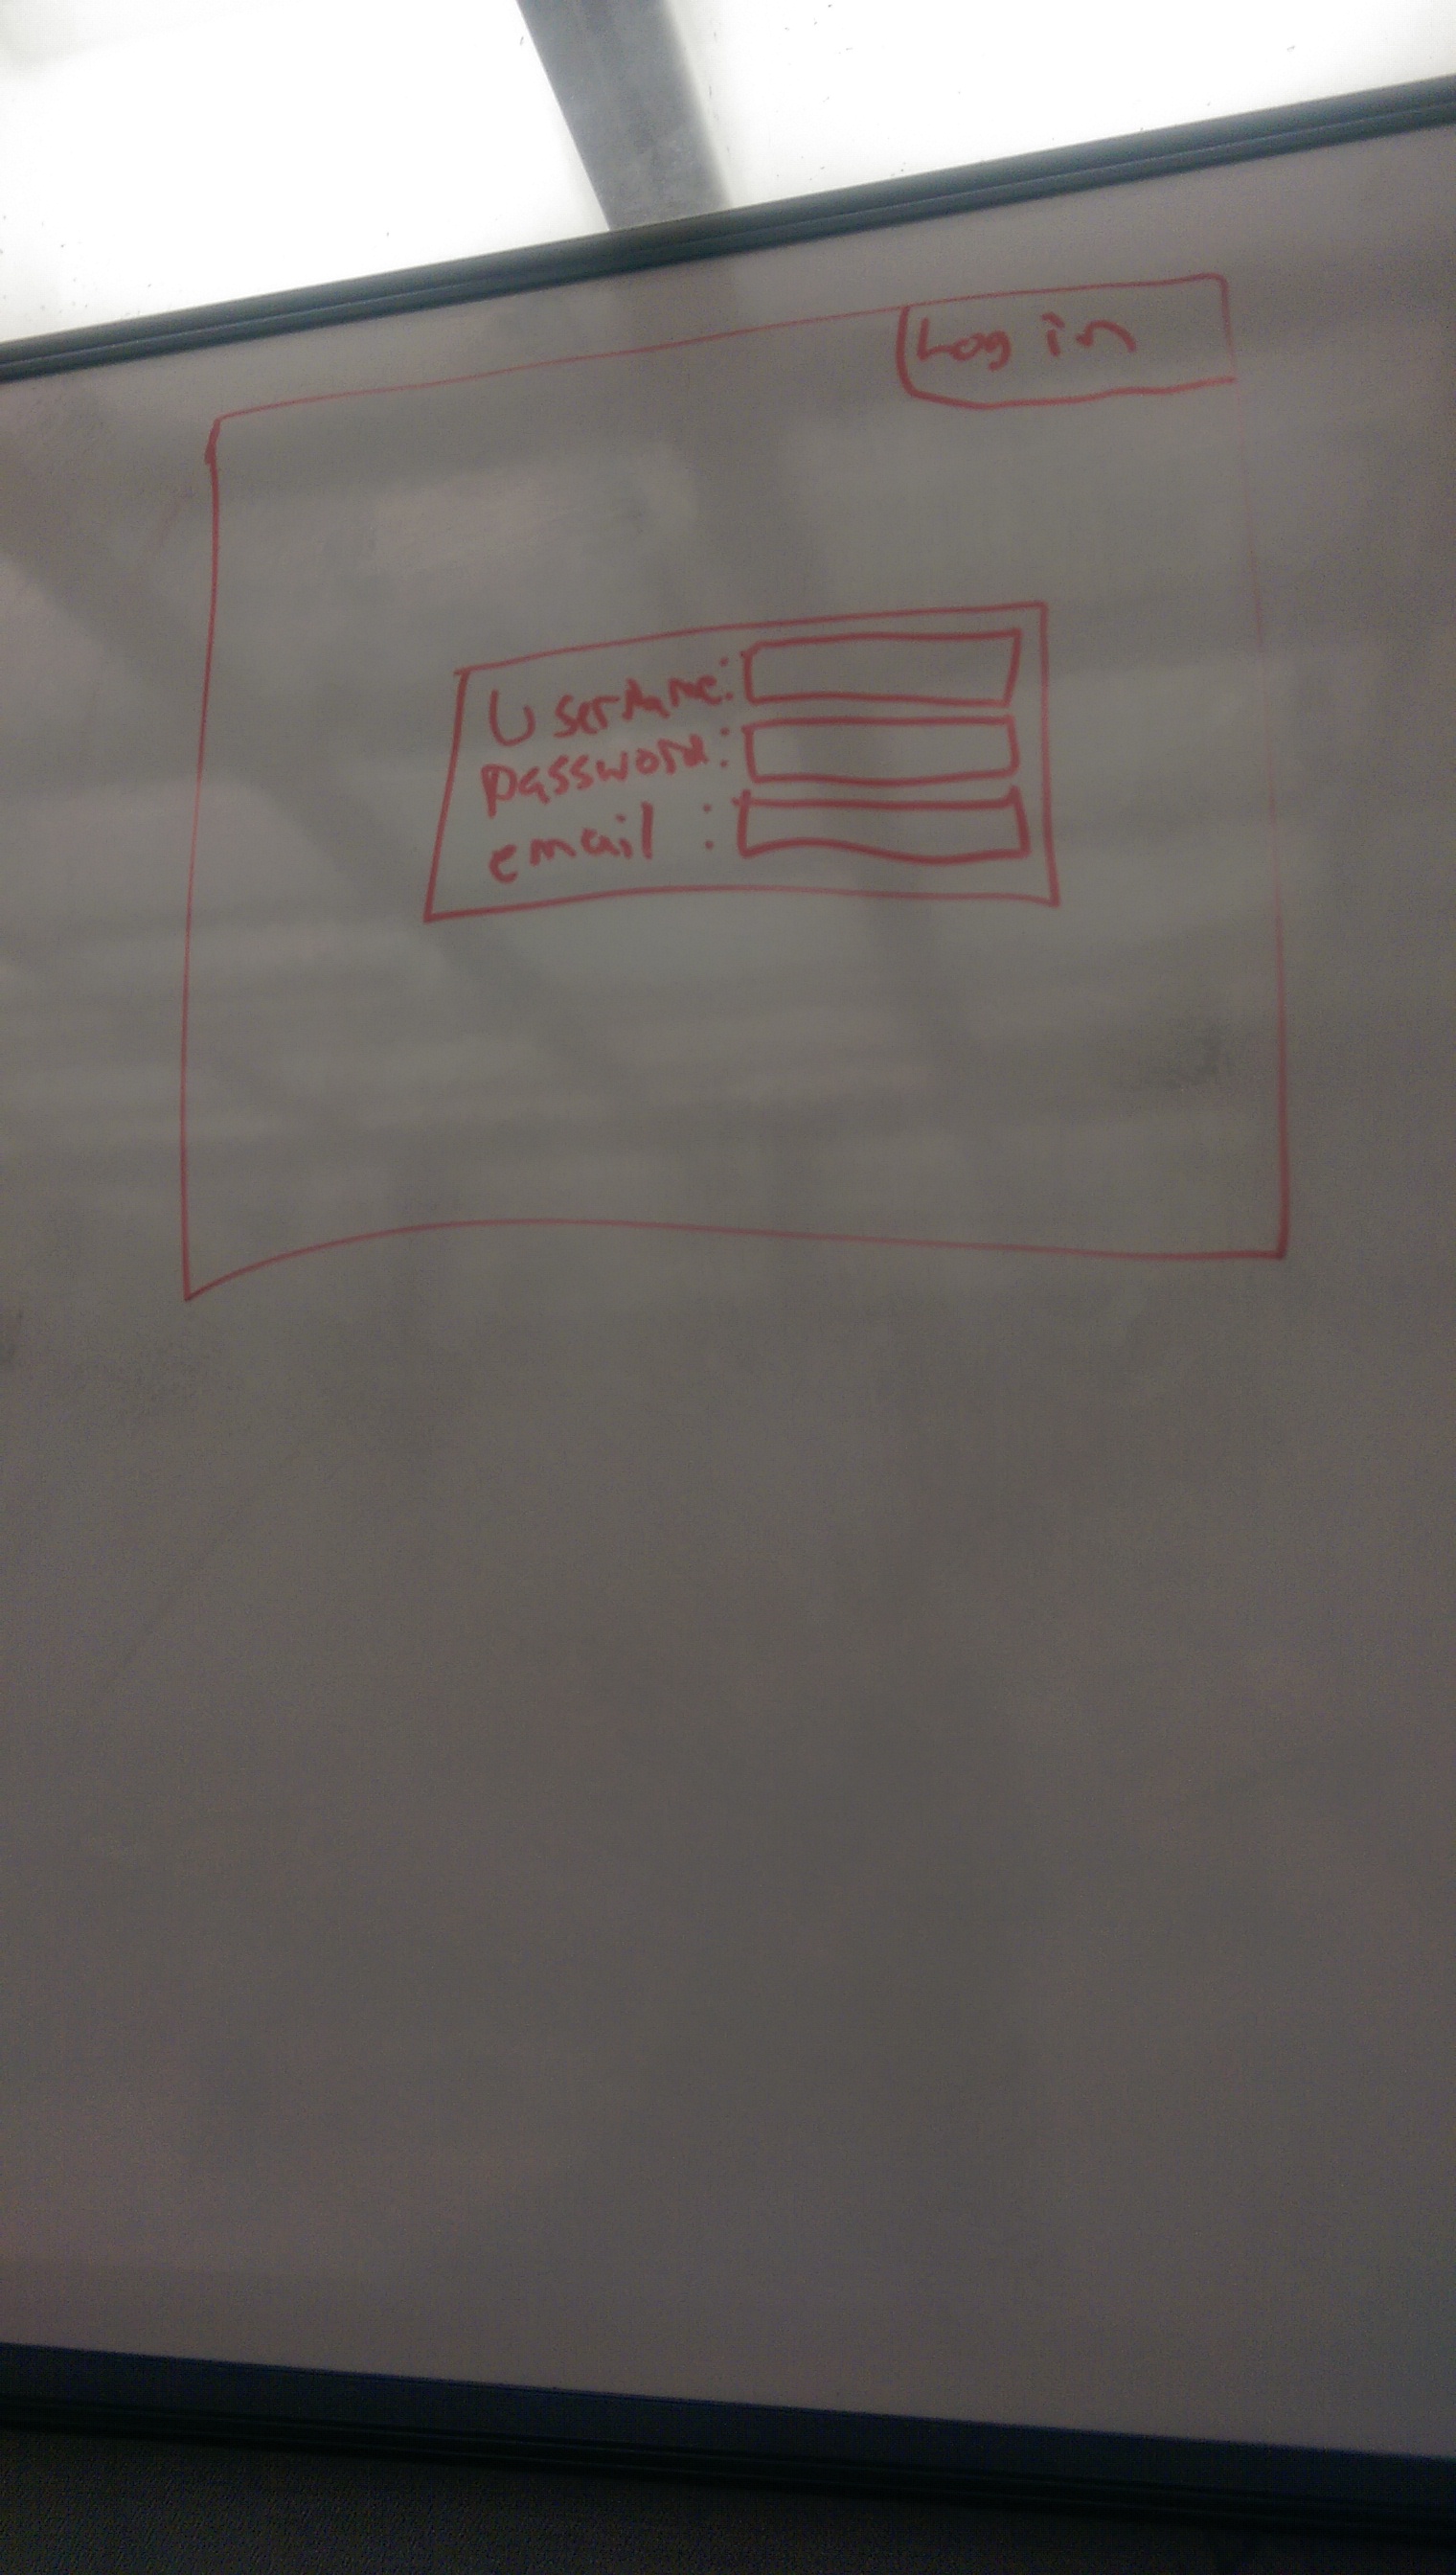 Log in
Username:
password:
email :